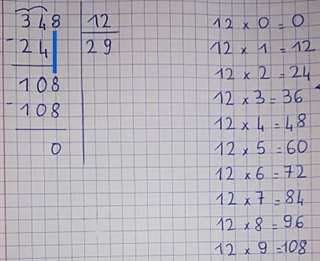 348 12
- 24 29
108
- 108
0
12 x 0 = 0
12 x 1 = 12
12 x 2 = 24
12 x 3 = 36
12 x 4 = 48
12 x 5 = 60
12 x 6 = 72
12 x 7 = 84
12 x 8 = 96
12 x 9 = 108